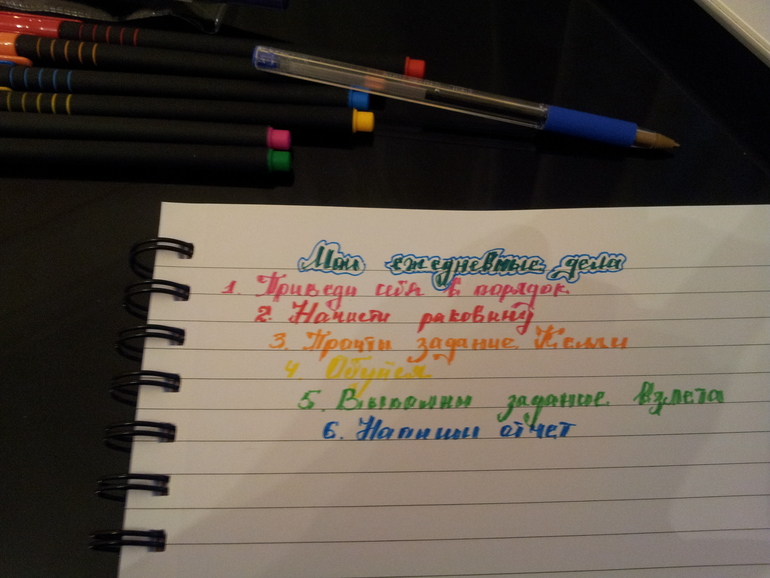 Мои ежедневные дела
1. Приведи себя в порядок
2. Начисти раковину
3. Прочти задание Келли
4. Обуйся
5. Выполни задание Взлета
6. Напиши отчет